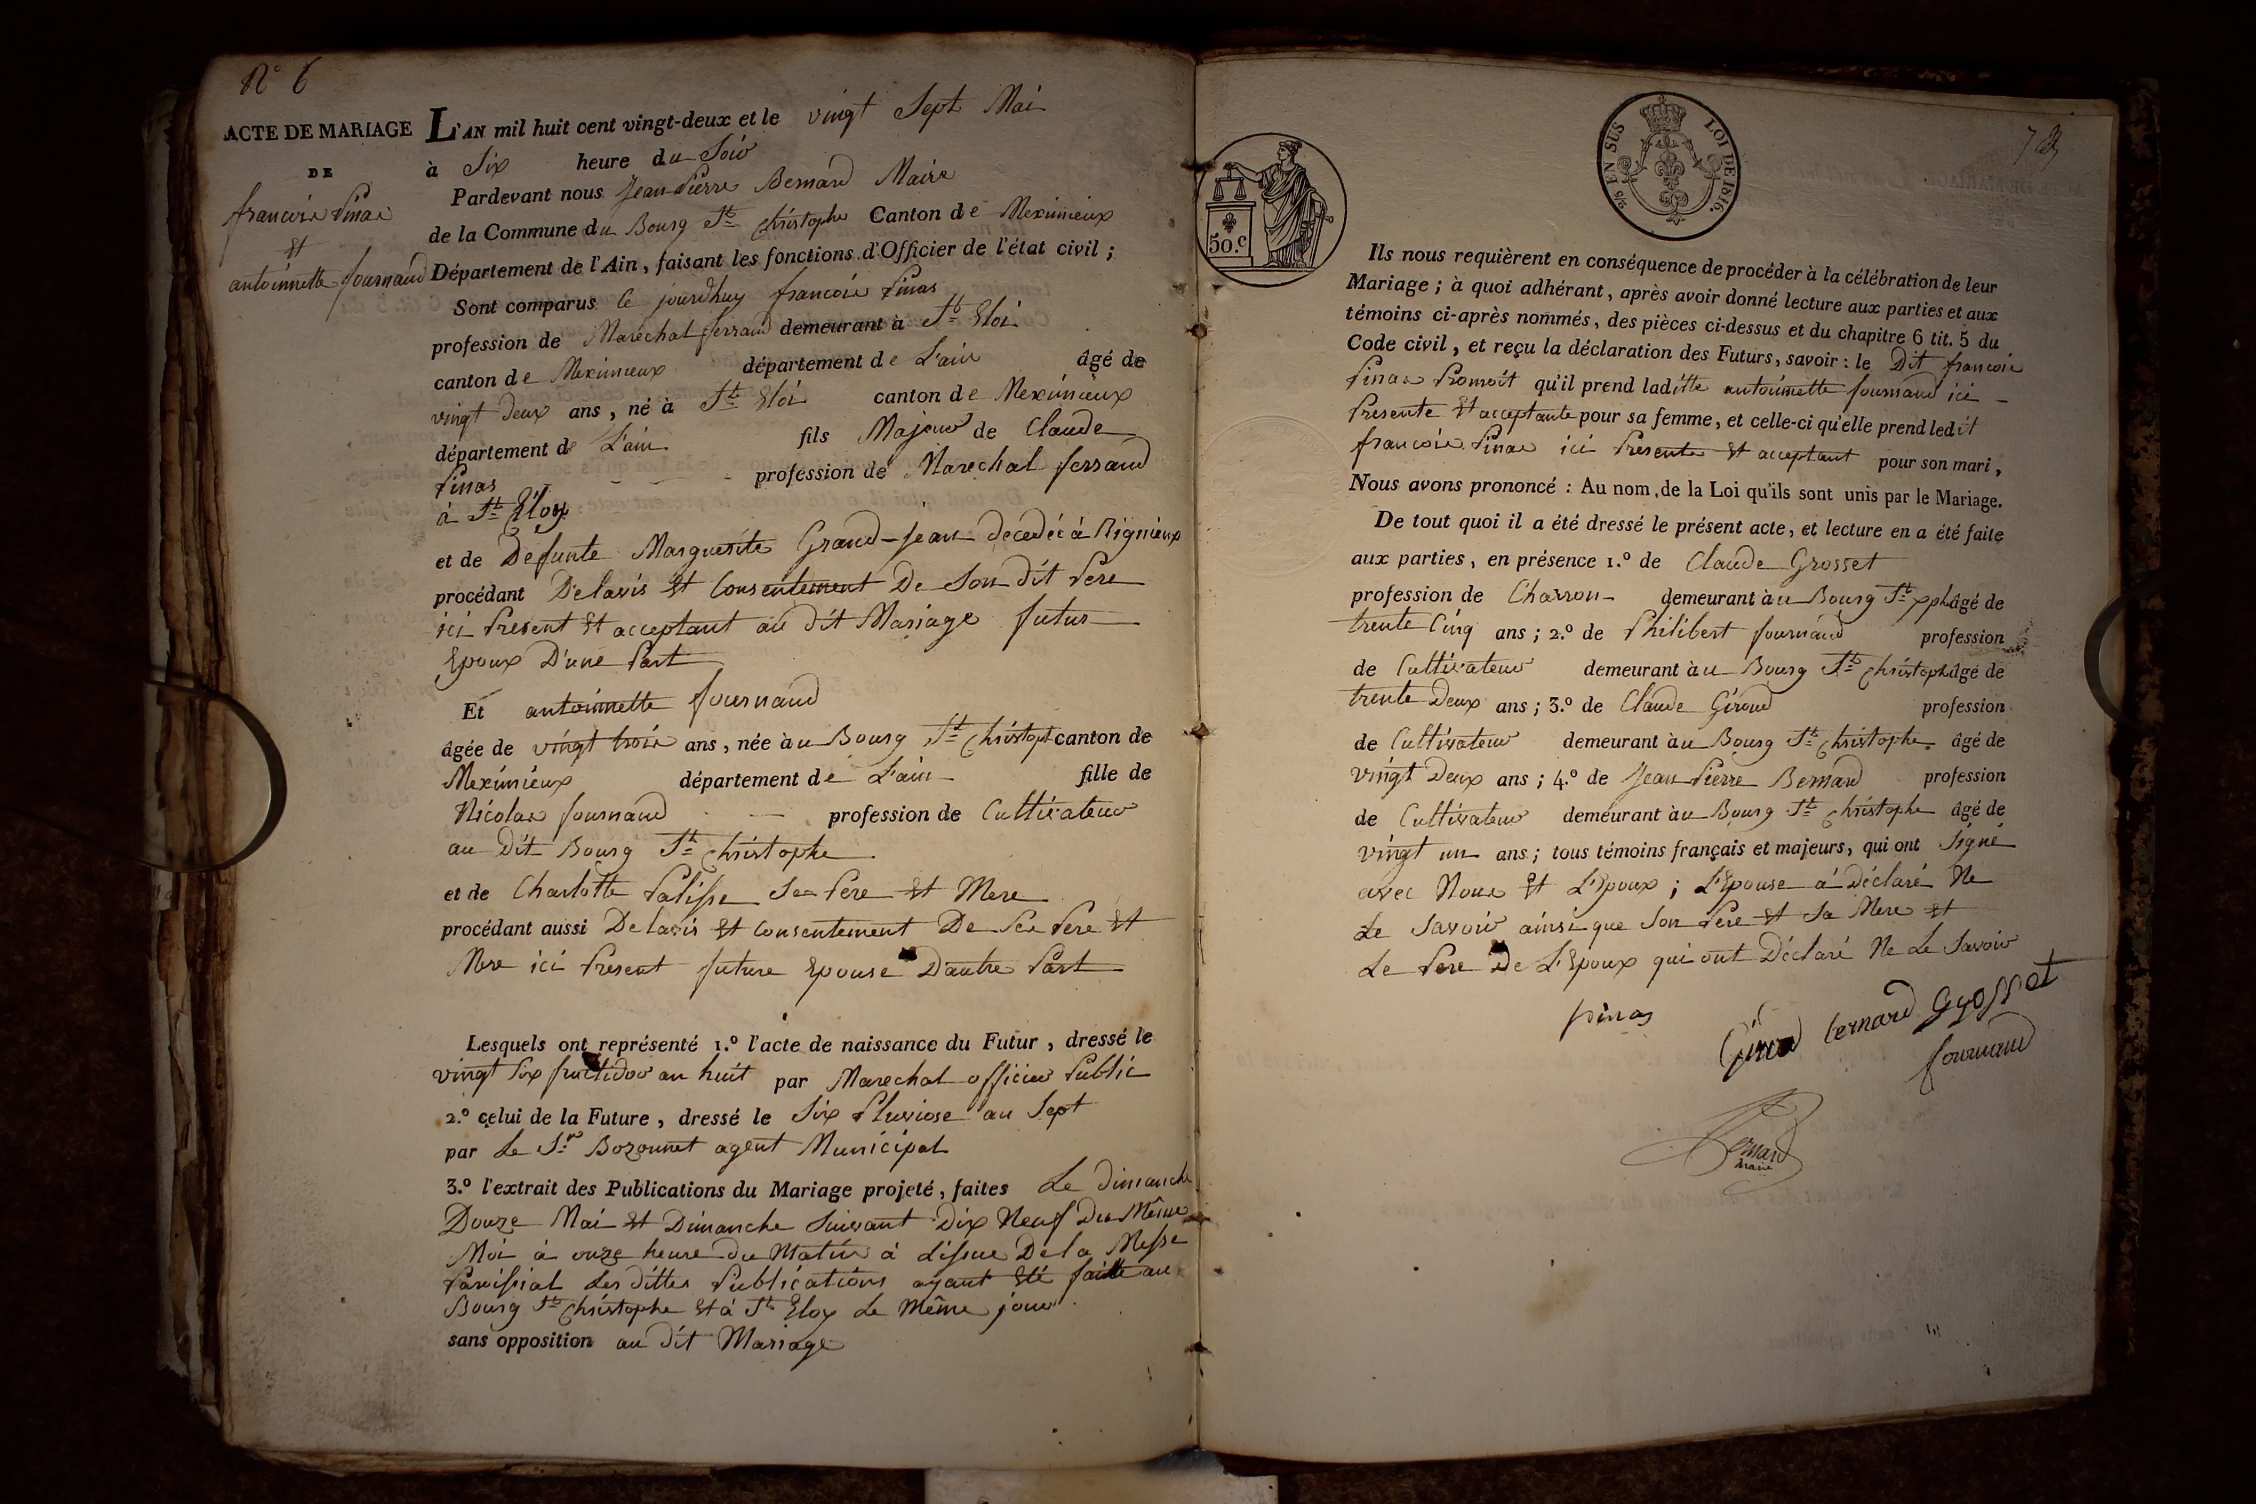 N° 6
ACTE DE MARIAGE
DE
francois Pinas
Et
antoinnette fournand
L'AN mil huit cent vingt-deux et le vingt Sept Mai
à Six heure du Soir
Pardevant nous Jean Pierre Bernard Maire
de la Commune du Bourg St Christophe Canton de Meximieux
Département de l'Ain, faisant les fonctions d'Officier de l'état civil ;
Sont comparus Ce jourdhuy francois Pinas
profession de Marechal ferrand demeurant à St Eloi
canton de Meximieux département de L'ain âgé de
vingt deux ans, né à St Eloi canton de Meximieux
département de L'ain fils Majeur de Claude
Pinas - - - profession de Marechal ferrand
à St Eloy
et de Defunte Marguerite Grand-jean décédéé à Rignieux
procédant Delavis Et Consentement De Son dit Pere
ici Present Et acceptant au dit Mariage futur
Epoux D'une Part
Et antoinnette fournand
âgée de vingt trois ans, née àu Bourg St Christoph canton de
Meximieux département de L'ain fille de
Nicolas fournand - profession de Cultivateur
au Dit Bourg St Christophe
et de Charlotte Palisse Ses Pere Et Mere
procédant aussi Delavis Et Consentement De Ses Pere Et
Mere ici Present future Epouse Dautre Part
Lesquels ont représenté 1.° l'acte de naissance du Futur, dressé le
vingt Six fructidor an huit par Marechal officier Public
2.° celui de la Future, dressé le Six Pluviose an Sept
par Le Sr Bozonnet agent Municipal
3.° l'extrait des Publications du Mariage projeté, faites Le dimanche
Douze Mai Et Dimanche Suivant Dix Neuf Du Même
Moi à onze heure du Matin à L'issue De la Messe
Paroissial Les dittes Publications ayant Eté faitte au
Bourg St Christophe Et à St Eloy Le Même jour
sans opposition au dit Mariage
50.c
2/10 EN SUS LOI DE 1816.
Ils nous requièrent en conséquence de procéder à la célébration de leur
Mariage ; à quoi adhérant, après avoir donné lecture aux parties et aux
témoins ci-après nommés, des pièces ci-dessus et du chapitre 6 tit. 5 du
Code civil, et reçu la déclaration des Futurs, savoir : le Dit francois
Pinas Promoit qu'il prend laditte antoinnette fournand ici -
Presente Et acceptante pour sa femme, et celle-ci qu'elle prend ledit
francois Pinas ici Presente Et acceptant pour son mari,
Nous avons prononcé : Au nom de la Loi qu'ils sont unis par le Mariage.
De tout quoi il a été dressé le présent acte, et lecture en a été faite
aux parties, en présence 1.° de Claude Grosset
profession de Charron demeurant àu Bourg St Xphe âgé de
trente Cinq ans ; 2.° de Philibert fournand profession
de Cultivateur demeurant àu Bourg St Christophe âgé de
trente Deux ans ; 3.° de Claude Giroud profession
de Cultivateur demeurant àu Bourg St Christophe âgé de
vingt Deux ans ; 4.° de Jean Pierre Bernard profession
de Cultivateur demeurant àu Bourg St Christophe âgé de
vingt un ans ; tous témoins français et majeurs, qui ont Signé
avec Nous Et L'Epoux ; L'Epouse a Déclaré Ne
Le Savoir ainsi que Son Pere Et Sa Mere Et
Le Pere De L'Epoux qui ont Déclaré Ne Le Savoir
pinas Girou bernard Grosset
fournand
Bernard
Maire